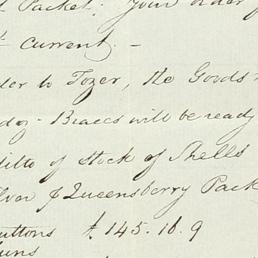 Packet. Your order f
current. -
der to Tozer, the Goods
doz - Braces will be ready
ditto of stock of Shells
Queensberry Pack
uttons £145.16.9
uns